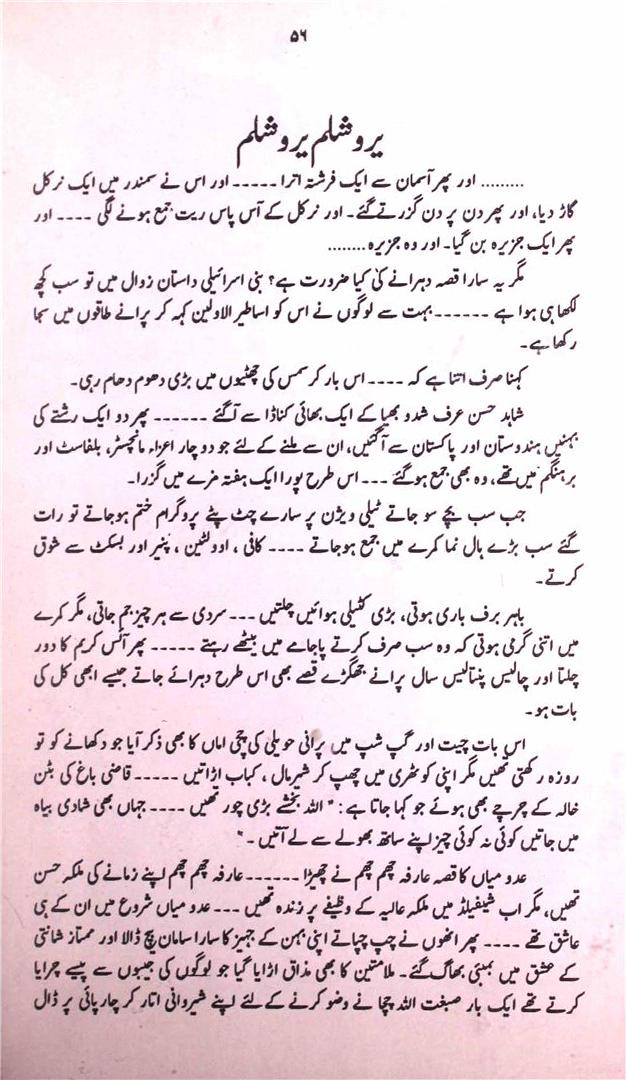 ۵۶
یروشلم یروشلم
......... اور پھر آسمان سے ایک فرشتہ اترا ----- اور اس نے سمندر میں ایک نرکل
گاڑ دیا، اور پھر دن پر دن گزرتے گئے۔ اور نرکل کے آس پاس ریت جمع ہونے لگی ---- اور
پھر ایک جزیرہ بن گیا۔ اور وہ جزیرہ ........
مگر یہ سارا قصہ دہرانے کی کیا ضرورت ہے؟ بنی اسرائیلی داستان زوال میں تو سب کچھ
لکھا ہی ہوا ہے ------ بہت سے لوگوں نے اس کو اساطیر الاولین کہہ کر پرانے طاقوں میں سجا
رکھا ہے۔
کہنا صرف اتنا ہے کہ ---- اس بار کرسمس کی چھٹیوں میں بڑی دھوم دھام رہی۔
شاہد حسن عرف شدو بھیا کے ایک بھائی کناڈا سے آ گئے ------ پھر دو ایک رشتے کی
بہنیں ہندوستان اور پاکستان سے آ گئیں، ان سے ملنے کے لئے جو دو چار اعزاء مانچسٹر، بلفاسٹ اور
برمنگھم میں تھے، وہ بھی جمع ہو گئے --- اس طرح پورا ایک ہفتہ مزے میں گزرا۔
جب سب بچے سو جاتے ٹیلی ویژن پر سارے چٹ پٹے پروگرام ختم ہو جاتے تو رات
گئے سب بڑے ہال نما کمرے میں جمع ہو جاتے ---- کافی ، اوولٹین ، پنیر اور بسکٹ سے شوق
کرتے۔
باہر برف باری ہوتی، بڑی کٹیلی ہوائیں چلتیں --- سردی سے ہر چیز جم جاتی، مگر کمرے
میں اتنی گرمی ہوتی کہ وہ سب صرف کرتے پاجامے میں بیٹھے رہتے ----- پھر آئس کریم کا دور
چلتا اور چالیس پینتالیس سال پرانے جھگڑے قصے بھی اس طرح دہرائے جاتے جیسے ابھی کل کی
بات ہو۔
اس بات چیت اور گپ شپ میں پرانی حویلی کی چچی اماں کا بھی ذکر آیا جو دکھانے کو تو
روزہ رکھتی تھیں مگر اپنی کوٹھری میں چھپ کر شیرمال ، کباب اڑاتیں ----- قاضی باغ کی بٹن
خالہ کے چرچے بھی ہوئے جو کہا جاتا ہے : " اللہ بخشے بڑی چور تھیں ---- جہاں بھی شادی بیاہ
میں جاتیں کوئی نہ کوئی چیز اپنے ساتھ بھولے سے لے آتیں ۔ "
عدو میاں کا قصہ عارفہ چھم چھم نے چھیڑا ------ عارفہ چھم چھم اپنے زمانے کی ملکہ حسن
تھیں، مگر اب شیفیلڈ میں ملکہ عالیہ کے وظیفے پر زندہ تھیں --- عدو میاں شروع میں ان کے ہی
عاشق تھے ---- پھر انھوں نے چپ چپاتے اپنی بہن کے جہیز کا سارا سامان بیچ ڈالا اور ممتاز شانتی
کے عشق میں بمبئی بھاگ گئے۔ ملامتین کا بھی مذاق اڑایا گیا جو لوگوں کی جیبوں سے پیسے چرایا
کرتے تھے ایک بار صبغت اللہ چچا نے وضو کرنے کے لئے اپنے شیروانی اتار کر چارپائی پر ڈال